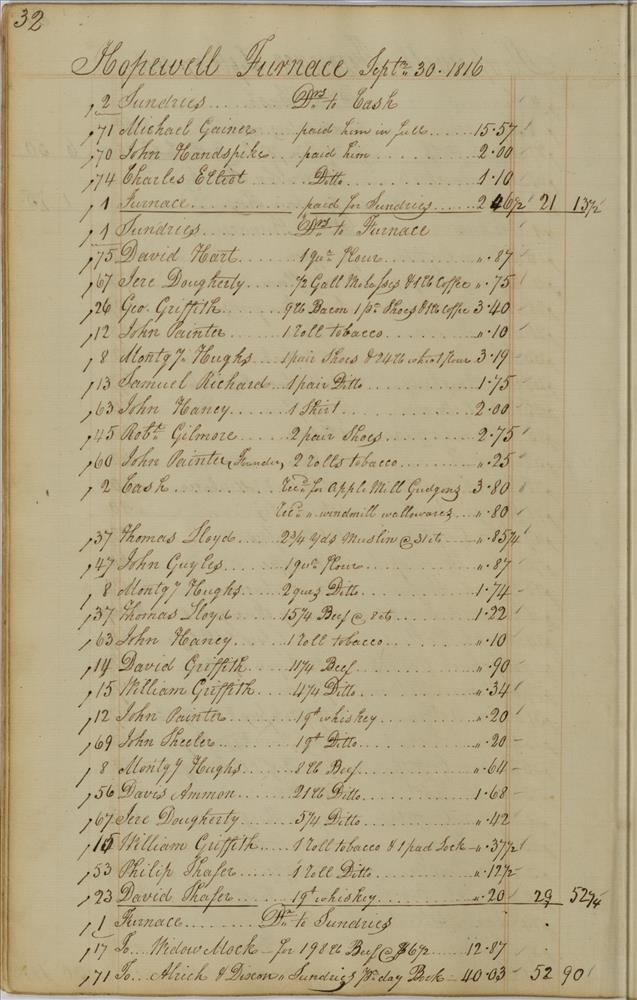 32
Hopewell Furnace Septr. 30. 1816
2 Sundries ........ Drs. to Cash
71 Michael Gainer ..... paid him in full ..... 15.57
70 John Handspike .. paid him .......... 2.00
74 Charles Elliot ........ Ditto ............ 1.10
1 Furnace .......... paid for Sundries ..... 2 46½ 21 13½
1 Sundries ........ Drs. to Furnace
75 David Hart ...... 1 qur. flour .......... " .87
67 Jere Dougherty ..... ½ Gall Molasses & 1 lb Coffee " .75
26 Geo. Griffith ..... 9 lb Bacon 1 pr. Shoes & 1 lb Coffee 3.40
12 John Painter ..... 1 Roll tobacco ....... " .10
8 Montgy. Hughs .... 1 pair Shoes & 24 lb wheat flour 3.19
13 Samuel Richard ... 1 pair Ditto .......... 1.75
63 John Haney ....... 1 Shirt ............ 2.00
45 Robt. Gilmore ..... 2 pair Shoes ........ 2.75
60 John Painter, (Founder) 2 rolls tobacco ....... " .25
2 Cash .......... Recd. for Apple Mill Gudgons 3.80
Recd. " windmill wallowarez ... " .80
37 Thomas Lloyd ..... 2¾ yds Muslin @ 31 cts " .85¼
47 John Guyles ....... 1 qur. flour ......... " .87
8 Montgy Hughs ..... 2 qurs Ditto ......... 1.74
37 Thomas Lloyd ..... 15¼ Beef @ 8 cts ..... 1.22
63 John Haney ...... 1 Roll tobacco ....... " .10
14 David Griffith ..... 11¼ Beef .......... " .90
15 William Griffith .... 4¼ Ditto .......... " .34
12 John Painter ...... 1 qt whiskey ........ " .20
69 John Sheeler ...... 1 qt Ditto .......... " .20
8 Montgy Hughs ..... 8 lb Beef .......... " .64
56 Davis Ammon ..... 21 lb Ditto .......... 1.68
67 Jere Dougherty ..... 5¼ Ditto .......... " .42
15 William Griffith .... 1 Roll tobacco & 1 pad Lock " .37½
53 Philip Shafer ..... 1 Roll Ditto ......... " .12½
23 David Shafer ...... 1 qt whiskey ........ " .20 29 52¼
1 Furnace ........ Dr. to Sundries
17 To ... Widow Mock for 198 lb Beef @ $6½ .... 12.87
71 To ... Alrich & Dixon " Sundries pr. day Book 40.03 52 90